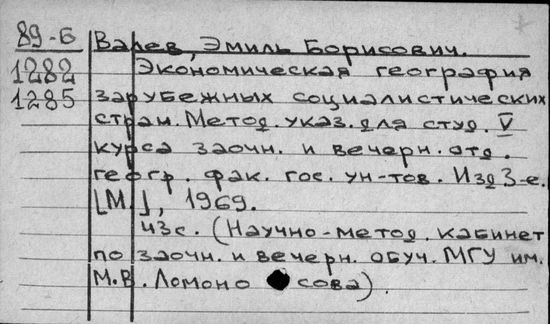 89-6 Валев, Эмиль Борисович.
1282 Экономическая география
1285 зарубежных социалистических
стран. Метод. указ. для студ. V
курса заочн. и вечерн. отд.
геогр. фак. гос. ун-тов. Изд 3-е.
[М.], 1969.
43с. (Научно-метод. кабинет
по заочн. и вечерн. обуч. МГУ им.
М.В. Ломоно сова).